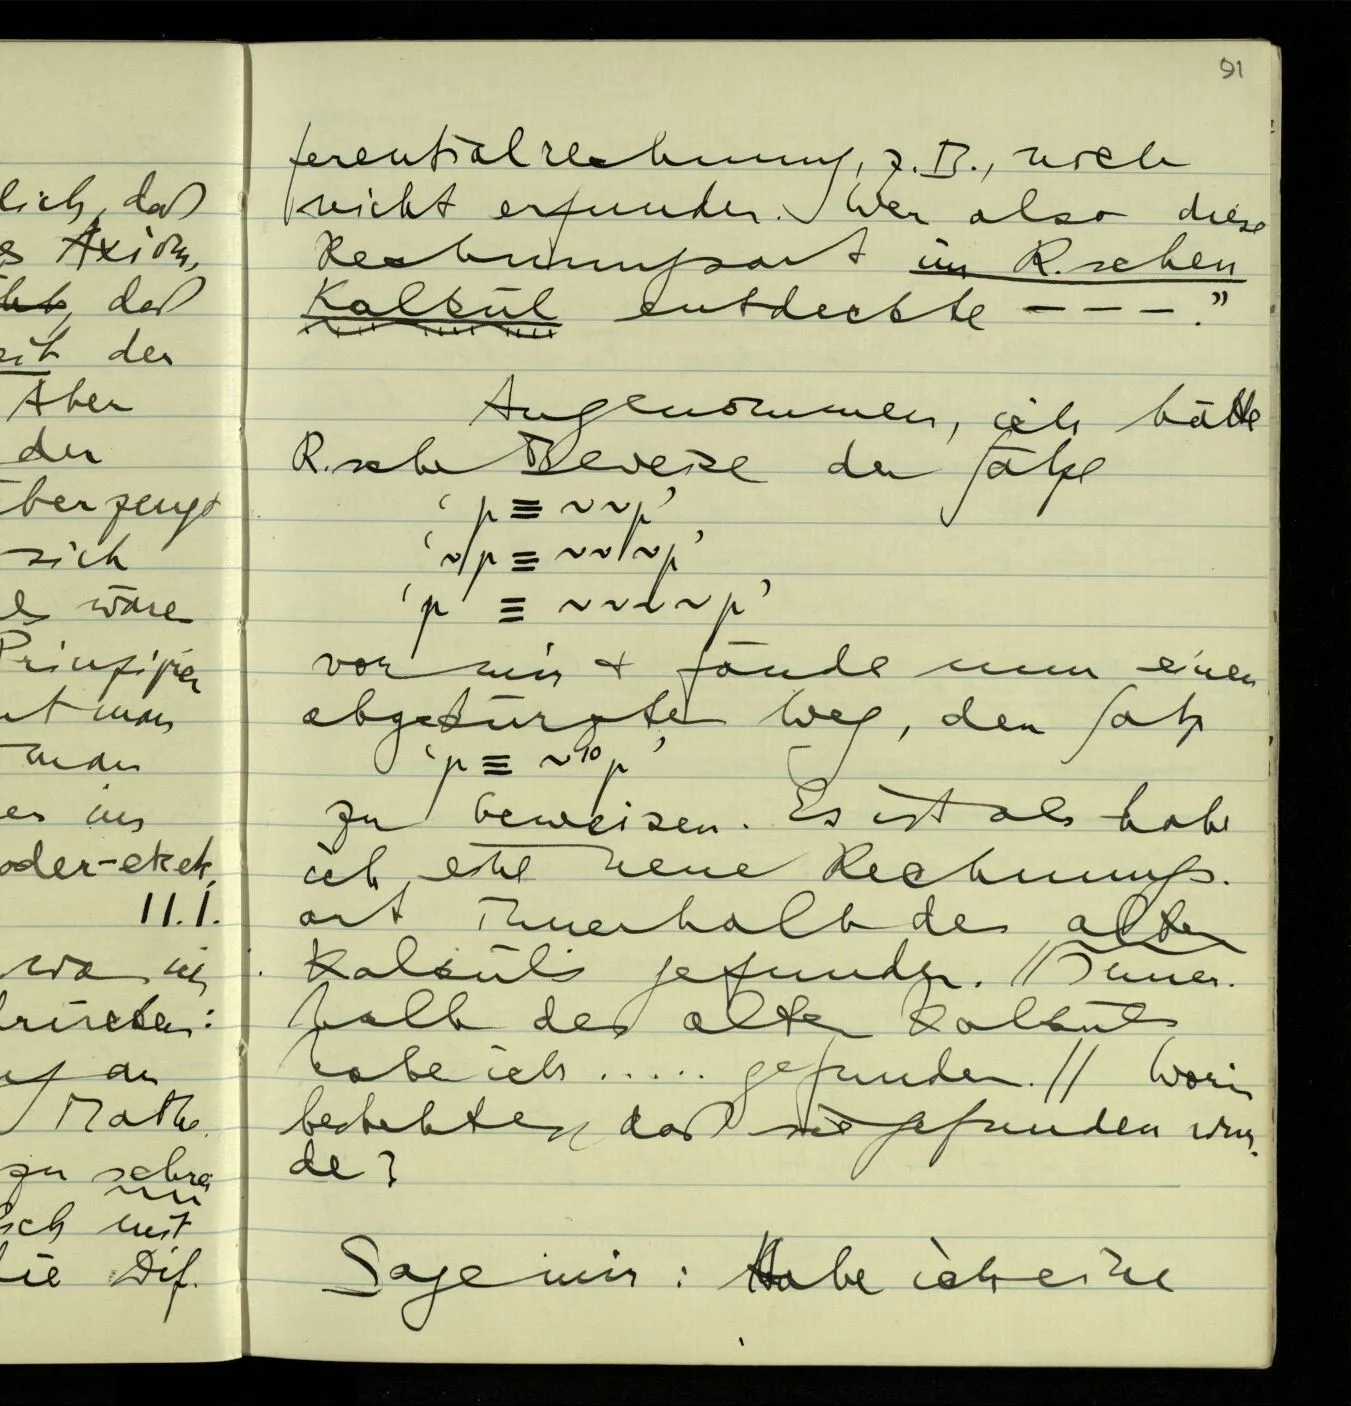 91
lich, daß
s Axiom,
daß
mit der
Aber
der
überzeugt
sich
es wäre
Prinzipien
man
man
es ins
oder-etect
11.1.
wo ich
drücken:
auf der
Mathe.
zu schrei
sich mit
die Dif.
ferentialrechnung, z.B., noch
nicht erfunden. Wer also diese
Rechnungsart im R.schen
Kalkül entdeckte – – – –."
Angenommen, ich hätte
R.sche Beweise der Sätze
'p ≡ ~~p'
'~p ≡ ~~~p'
'p ≡ ~~~~p'
vor mir & fände nun einen
abgekürzten Weg, den Satz
'p ≡ ~¹⁰p'
zu beweisen. Es ist als habe
ich eine neue Rechnungs-
art innerhalb des alten
Kalküls gefunden. // Inner-
halb des alten Kalküls
habe ich ..... gefunden. // Worin
besteht es, daß sie gefunden wur-
de?
Sage mir: Habe ich eine